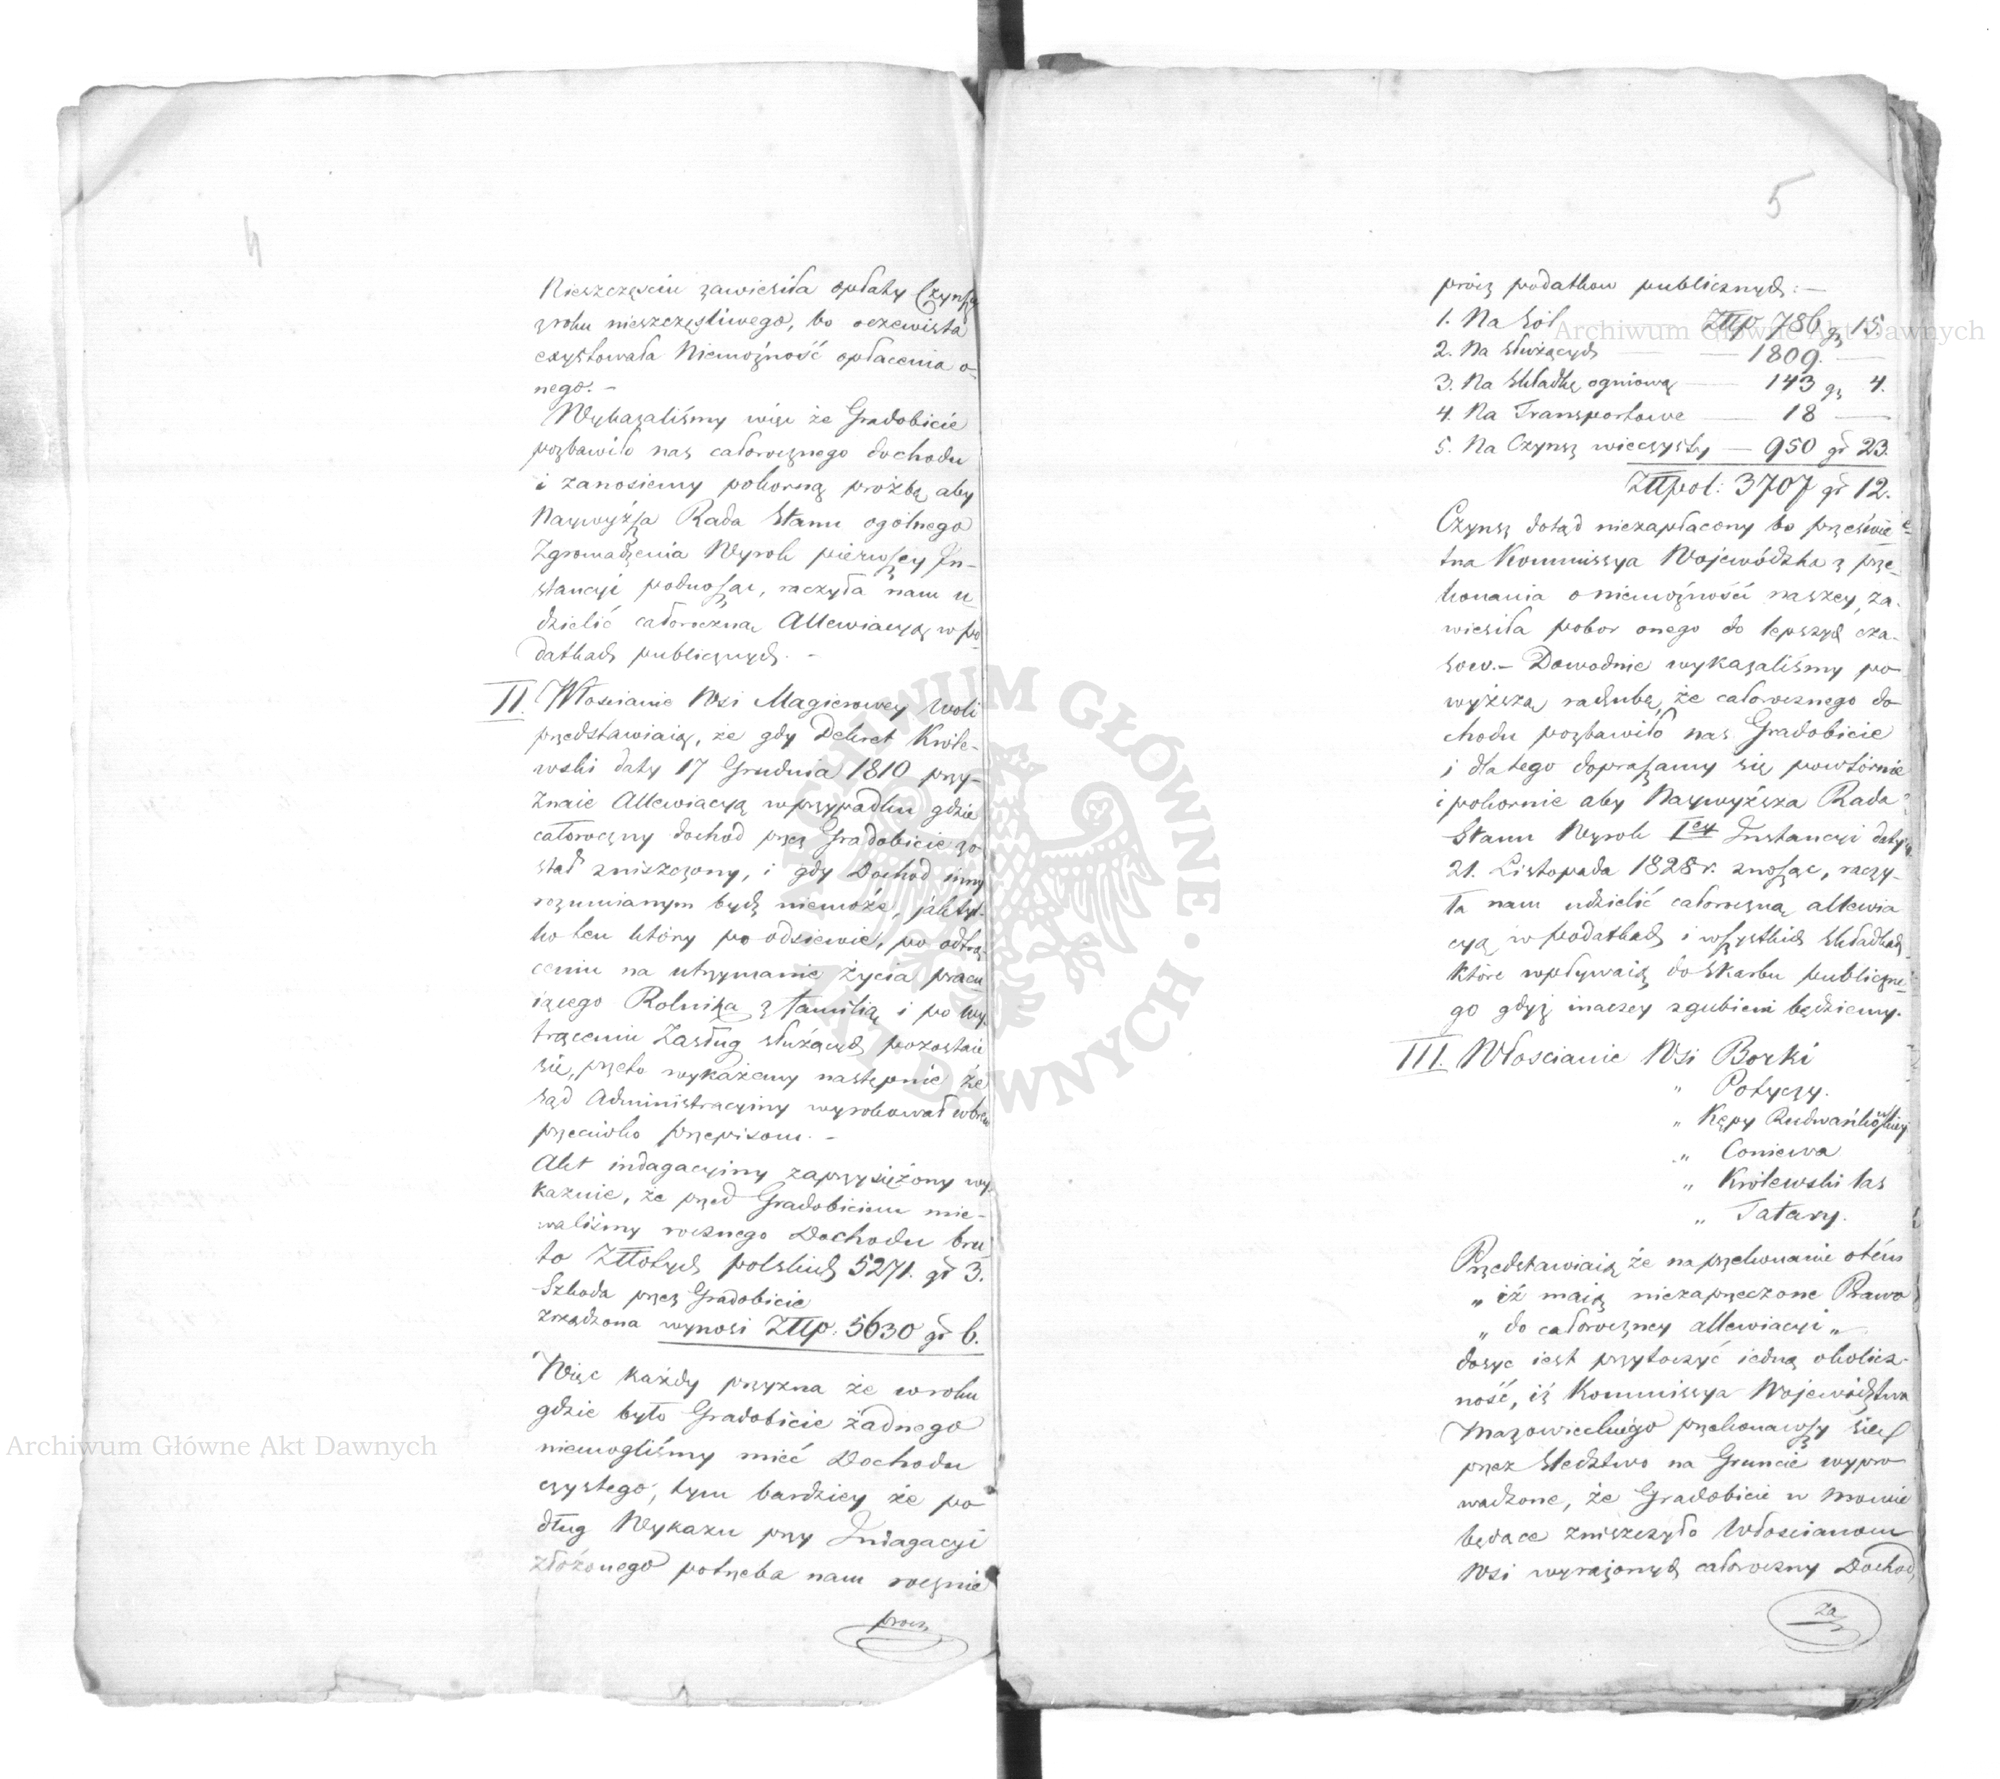 4
Nieszczęściu zawiesiła opłaty Czynszu
z roku nieszczęśliwego, bo oczewista
exystowała Niemożność opłacenia o-
nego. –
Wykazaliśmy więc że Gradobicie
pozbawiło nas całorocznego dochodu
i zanosiemy pokorną prożbę aby
Naywyższa Rada Stanu ogólnego
Zgromadzenia Wyrok pierwszey In-
stancyi podnosząc, raczyła nam u-
dzielić całoroczną Allewiacyą w po-
datkach publicznych. –
II. Włoscianie Wsi Magierowey Woli
przedstawiaią, że gdy Dekret Króle-
wski daty 17 Grudnia 1810 przy-
znaie Allewiacyą w przypadku gdzie
całoroczny dochod przez Gradobicie zo-
stał zniszczony, i gdy Dochod inny
rozumianym bydź niemoże, jak tyl-
ko ten który po odsiewie, po odtrą-
ceniu na utrzymanie życia pracu-
iącego Rolnika z familią i po wy-
trąceniu Zasług służących pozostaie
się, przeto wykażemy następnie że
Sąd Administracyiny wyrokował wbrew
przeciwko przepisom. –
Akt indagacyiny zaprzysiężony wy-
kazuie, że przed Gradobiciem mie-
waliśmy rocznego Dochodu bru-
to Złłotych polskich 5271. gr 3.
Szkoda przez Gradobicie
zrządzona wynosi Złłp. 5630 gr 6.
Więc każdy przyzna że w roku
gdzie było Gradobicie żadnego
niemogliśmy mieć Dochodu
czystego, tym bardziey że po-
dług Wykazu przy Indagacyi
złożonego potrzeba nam rocznie
procz
5
prócz podatkow publicznych: –
1. Na Sól Złłp 786 gr 15.
2. Na służących — 1809. —
3. Na Składkę ogniową — 143 gr 4.
4. Na Transportowe — 18 —
5. Na Czynsz wieczysty — 950 gr 23.
Złłpol: 3707 gr 12.
Czynsz dotąd niezapłacony bo prześwie-
tna Kommissya Wojewódzka z prze-
konania o niemożności naszey, za-
wiesiła pobor onego do lepszych cza-
sow. – Dowodnie wykazaliśmy po-
wyższą rachubą, że całorocznego do-
chodu pozbawiło nas Gradobicie
i dla tego dopraszamy się powtórnie
i pokornie aby Naywyższa Rada
Stanu Wyrok Iey Instancyi daty
21. Listopada 1828 r. znosząc, raczy-
ła nam udzielić całoroczną allewia
cyą w podatkach i wszystkich składkach
które wpływaią do Skarbu publiczne-
go gdyż inaczey zgubieni będziemy.
III. Włoscianie Wsi Borki
" Potyczy.
" Kępy Radwańkowskiey
" Coniewa
" Królewski las
" Tatary.
Przedstawiaią że na przekonanie otém
„ iż maią niezaprzeczone Prawo
„ do całoroczney allewiacyi „
dosyc iest przytoczyć iedną okolicz-
ność, iż Kommissya Wojewódźtwa
Mazowieckiégo przekonawszy się
przez śledztwo na Gruncie wypro-
wadzone, że Gradobicie w mowie
będące zniszczyło Włoscianom
Wsi wyrażonych całoroczny Dochod,
za
Archiwum Główne Akt Dawnych
Archiwum Główne Akt Dawnych
ARCHIWUM GŁÓWNE • AKT DAWNYCH •